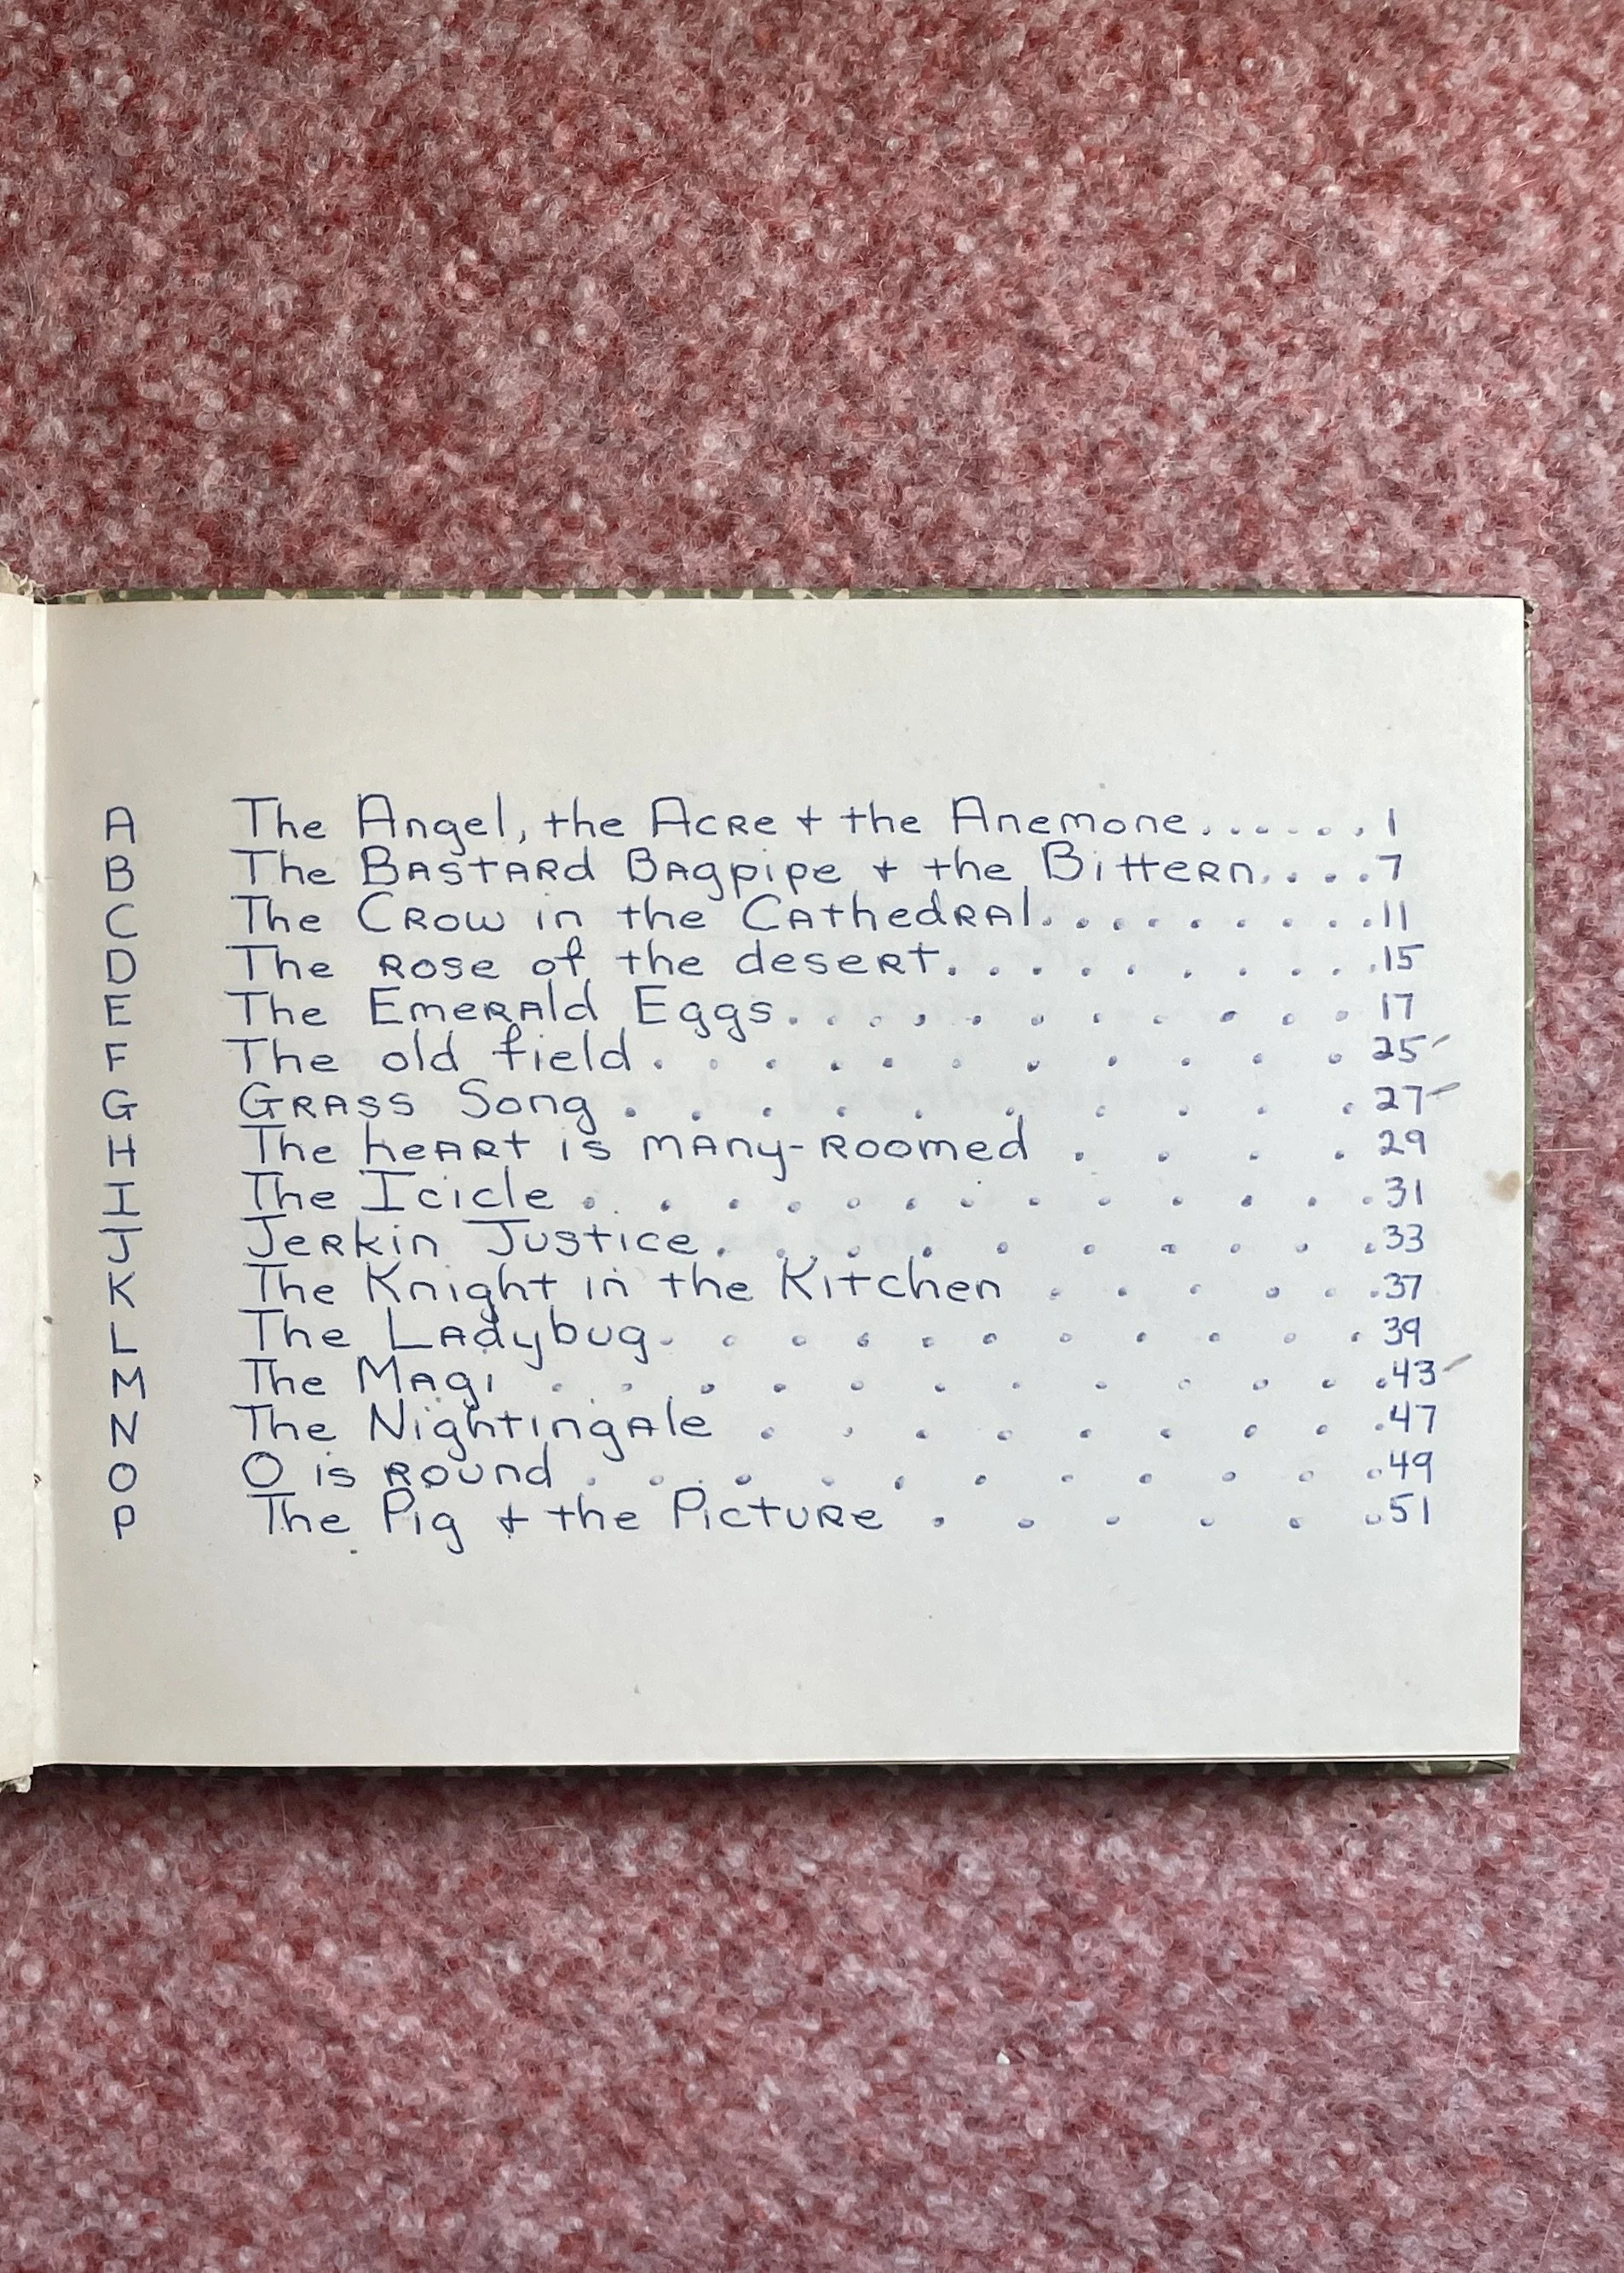 A The Angel, the Acre + the Anemone...... 1
B The Bastard Bagpipe + the Bittern.... 7
C The Crow in the Cathedral......... 11
D The rose of the desert......... 15
E The Emerald Eggs......... 17
F The old field.......... 25
G Grass Song......... 27
H The heart is many-roomed .... 29
I The Icicle........... 31
J Jerkin Justice......... 33
K The Knight in the Kitchen ...... 37
L The Ladybug.......... 39
M The Magi ............ 43
N The Nightingale ......... 47
O O is round ........... 49
P The Pig + the Picture ...... 51